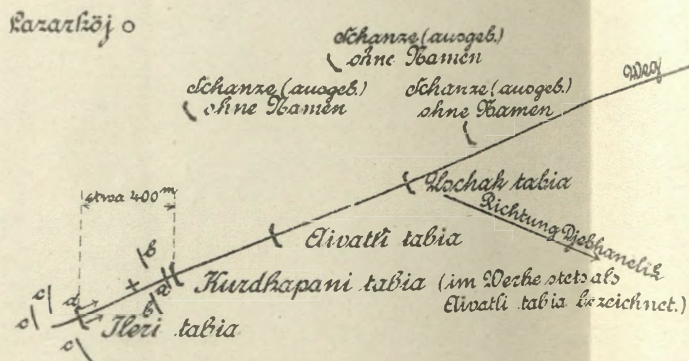 Lazarköj
Schanze (ausgeb.)
ohne Namen
Schanze (ausgeb.)
ohne Namen
Schanze (ausgeb.)
ohne Namen
Weg
etwa 400 m
Uschak tabia
Richtung Djebhanelik
Aivatli tabia
Kurdhapani tabia (im Werke stets als
Aivatli tabia bezeichnet.)
Ileri tabia
b
b
a
c
c
d
c